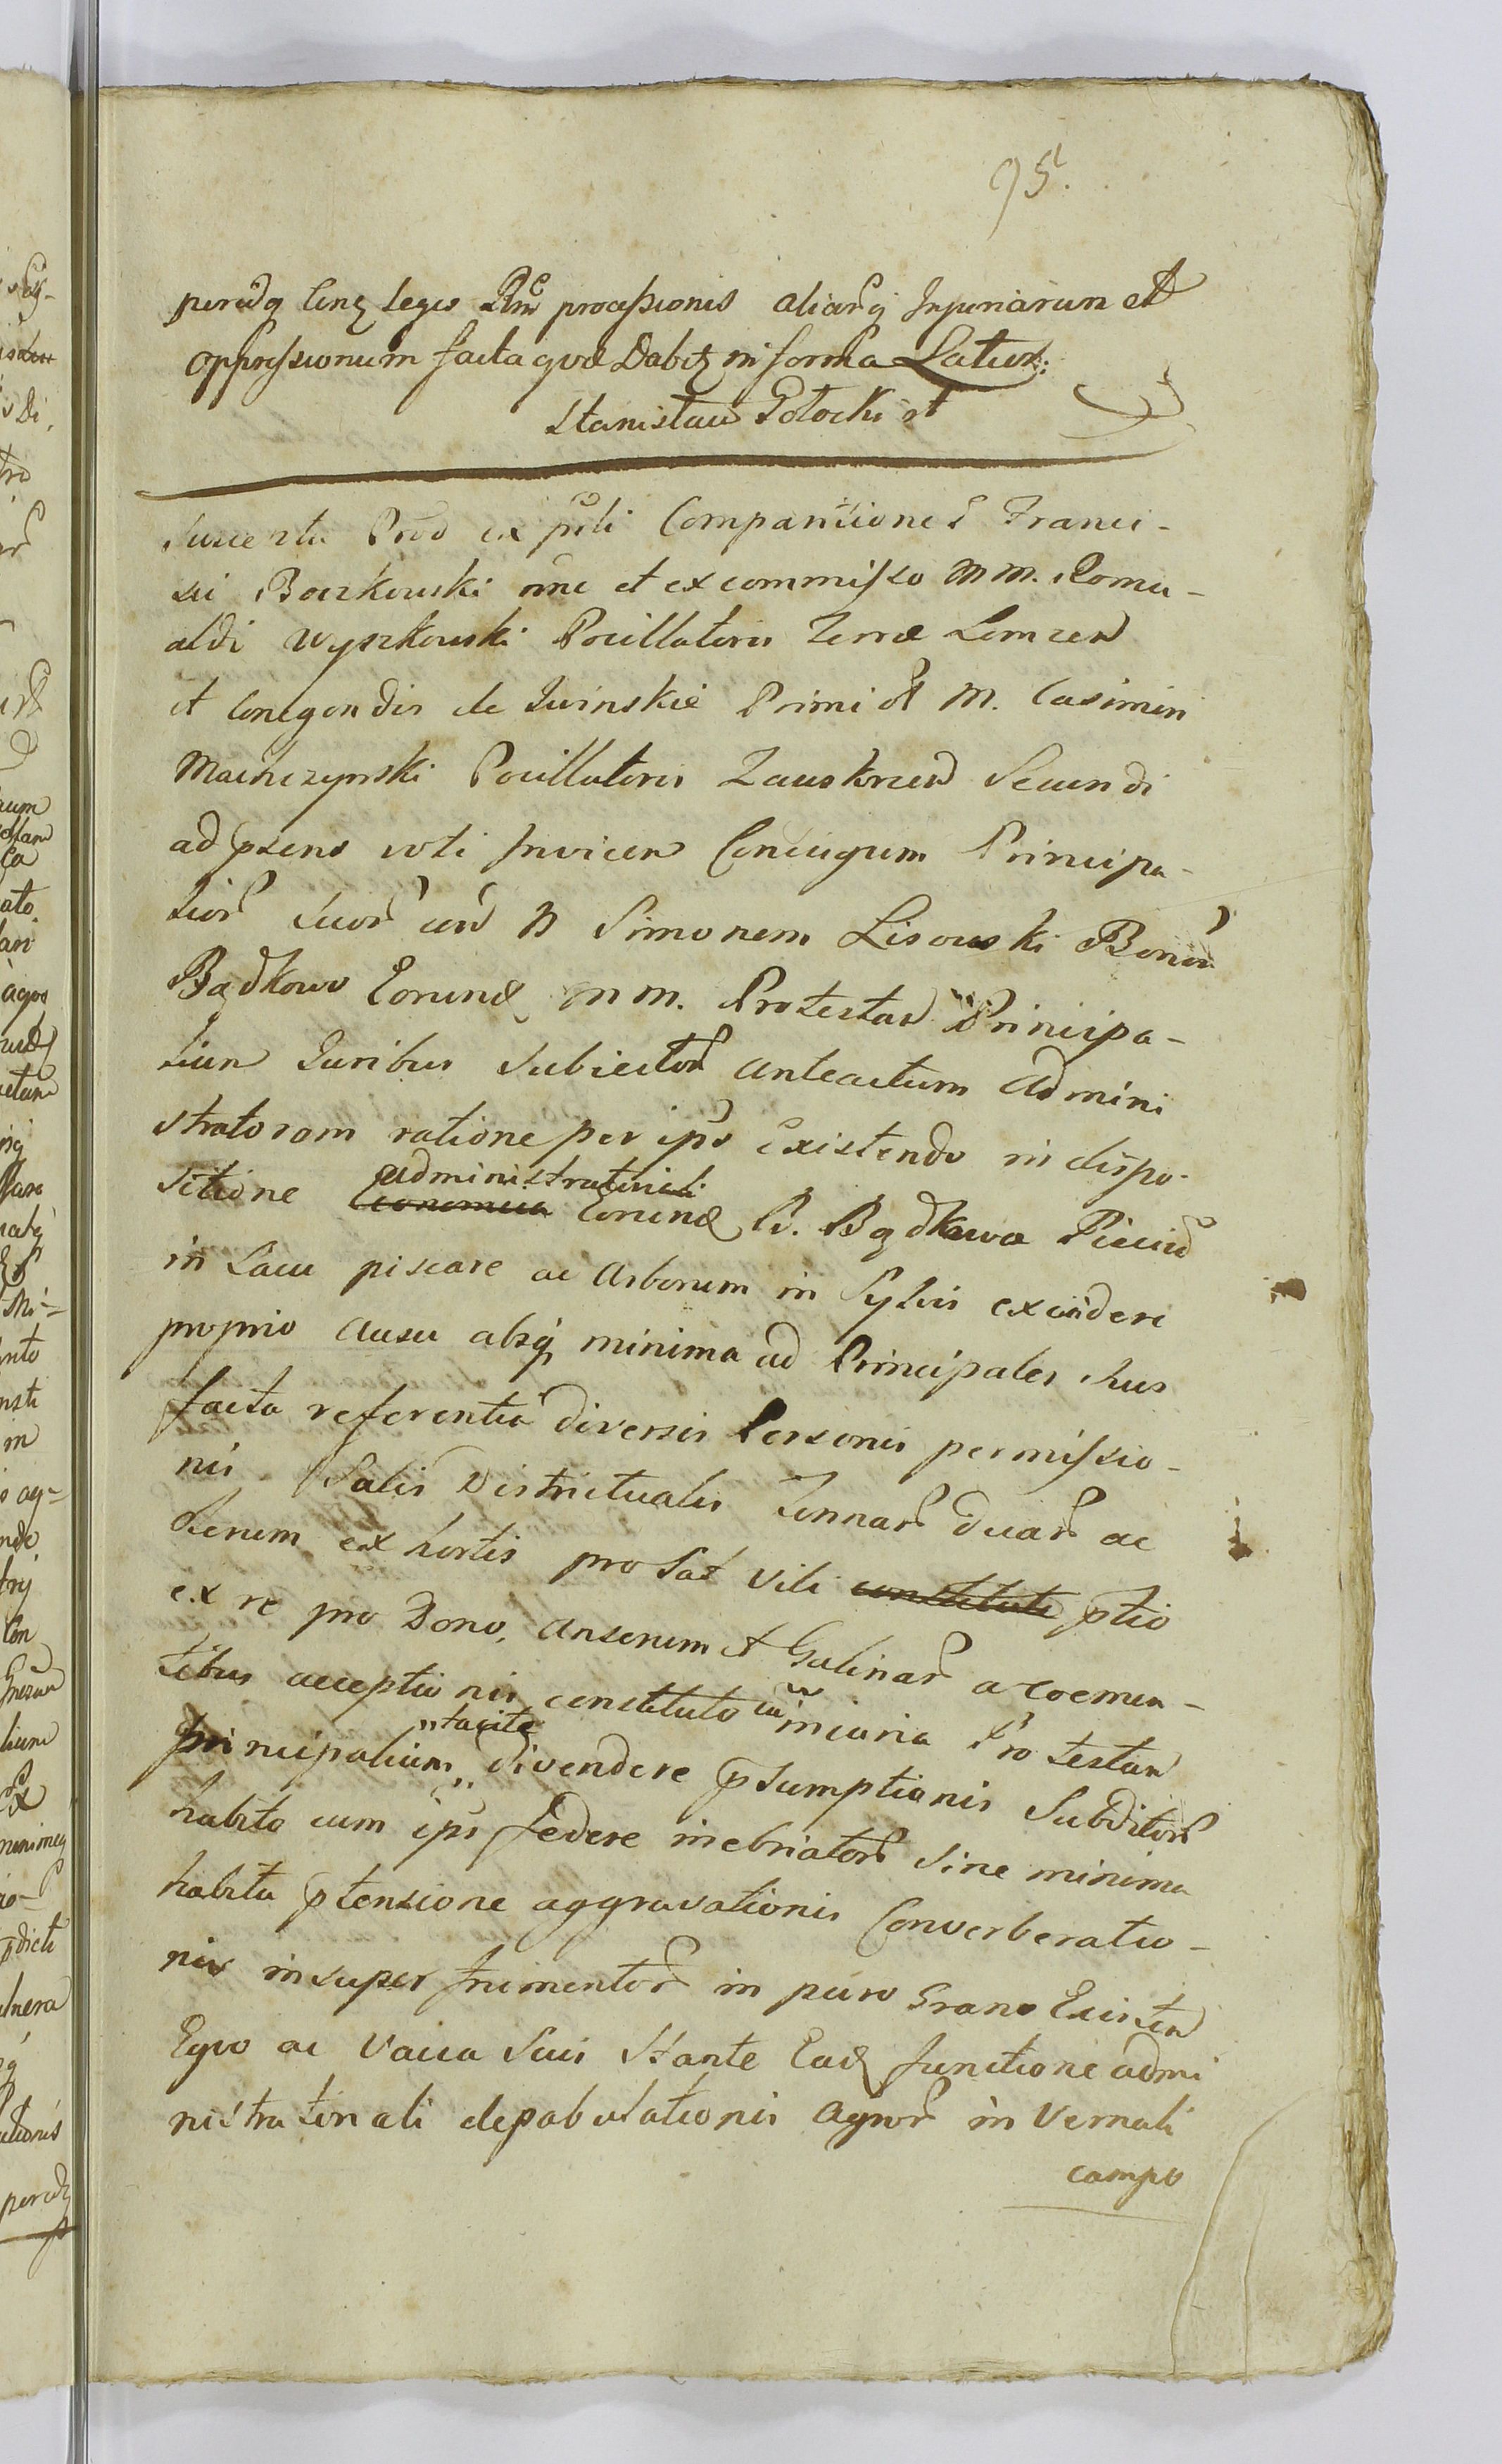 95.
peredq Conq legis processionis aliarq Injuriarum et
oppressionum facta quæ Dabit in forma Latiori:
Stanisław Potocki
Succenta Prod ex psli Comparitione S Franci-
sci Boczkowski nne et ex commisso MM. Romu-
aldi Wyszkowski Pocillatoris Terræ Lomzen
et Conegondis de Primi et M. Casimiri
Pocillatoris Zauskrzen Secundi
ad psens voti Invicem Conjugum Principa-
lior suor con N Simonem Lisowski Bonor
Bądkowo Eorund MM. Protestan Principa-
lium Juribus Subiector anteactum Admini
stratorom ratione per ips Existendo in dispo-
sitione administratoriali Economica Eorund B. Bądkowa Piscium
in Lacu piscare ac Arborum in Sylvis excidere
proprio ausu absq minima ad Principales suos
facta referentia diversis Personis permissio-
nis Salis Districtualis Tonnar duar ac
olerum ex hortis pro Sat vili constituti ptio
ex re pro Dono, anserum et Galinar a coemen-
tibus acceptionis constituto cu iniuria Protestan
Principalium tacite divendere psumptionis Subditor
habito cum ips federe inebriator sine minima
habita ptensione aggravationis Converberatio-
nis insuper frumentor in puro Grano Existen
Equo ac Vacca Suis Stante Ead functione admi
nistratoriali depabulationis agror in Vernali
campo